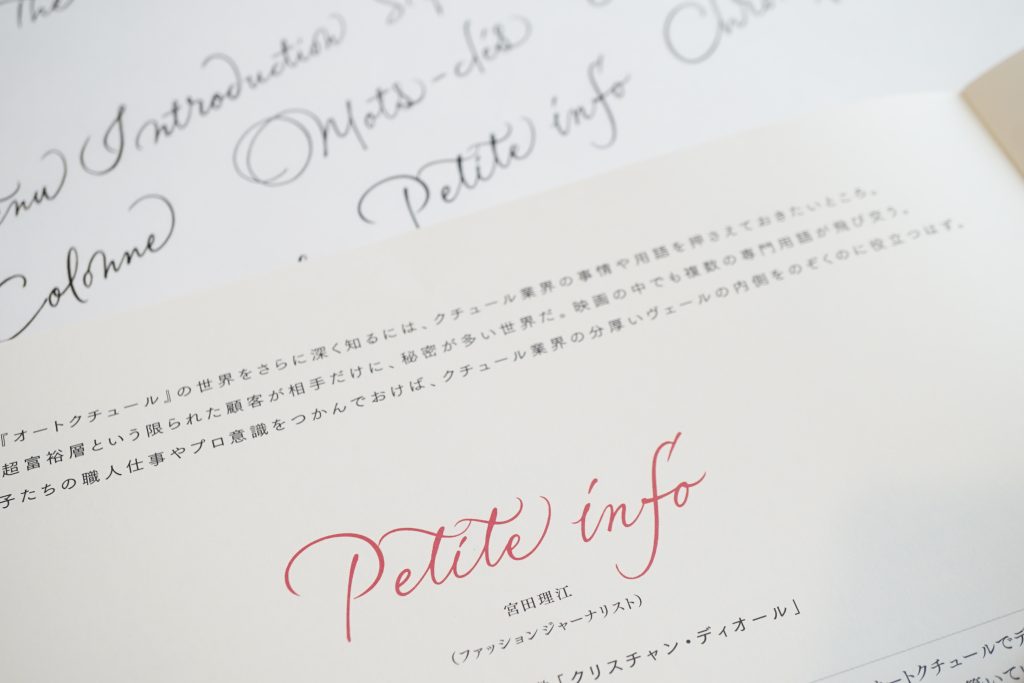 The
Introduction
Mots-clés
Petite info
Colonne
『オートクチュール』の世界をさらに深く知るには、クチュール業界の事情や用語を押さえておきたいところ。
超富裕層という限られた顧客が相手だけに、秘密が多い世界だ。映画の中でも複数の専門用語が飛び交う。
子たちの職人仕事やプロ意識をつかんでおけば、クチュール業界の分厚いヴェールの内側をのぞくのに役立つはず。
Petite info
宮田理江
(ファッションジャーナリスト)
「クリスチャン・ディオール」
オートクチュールでデ